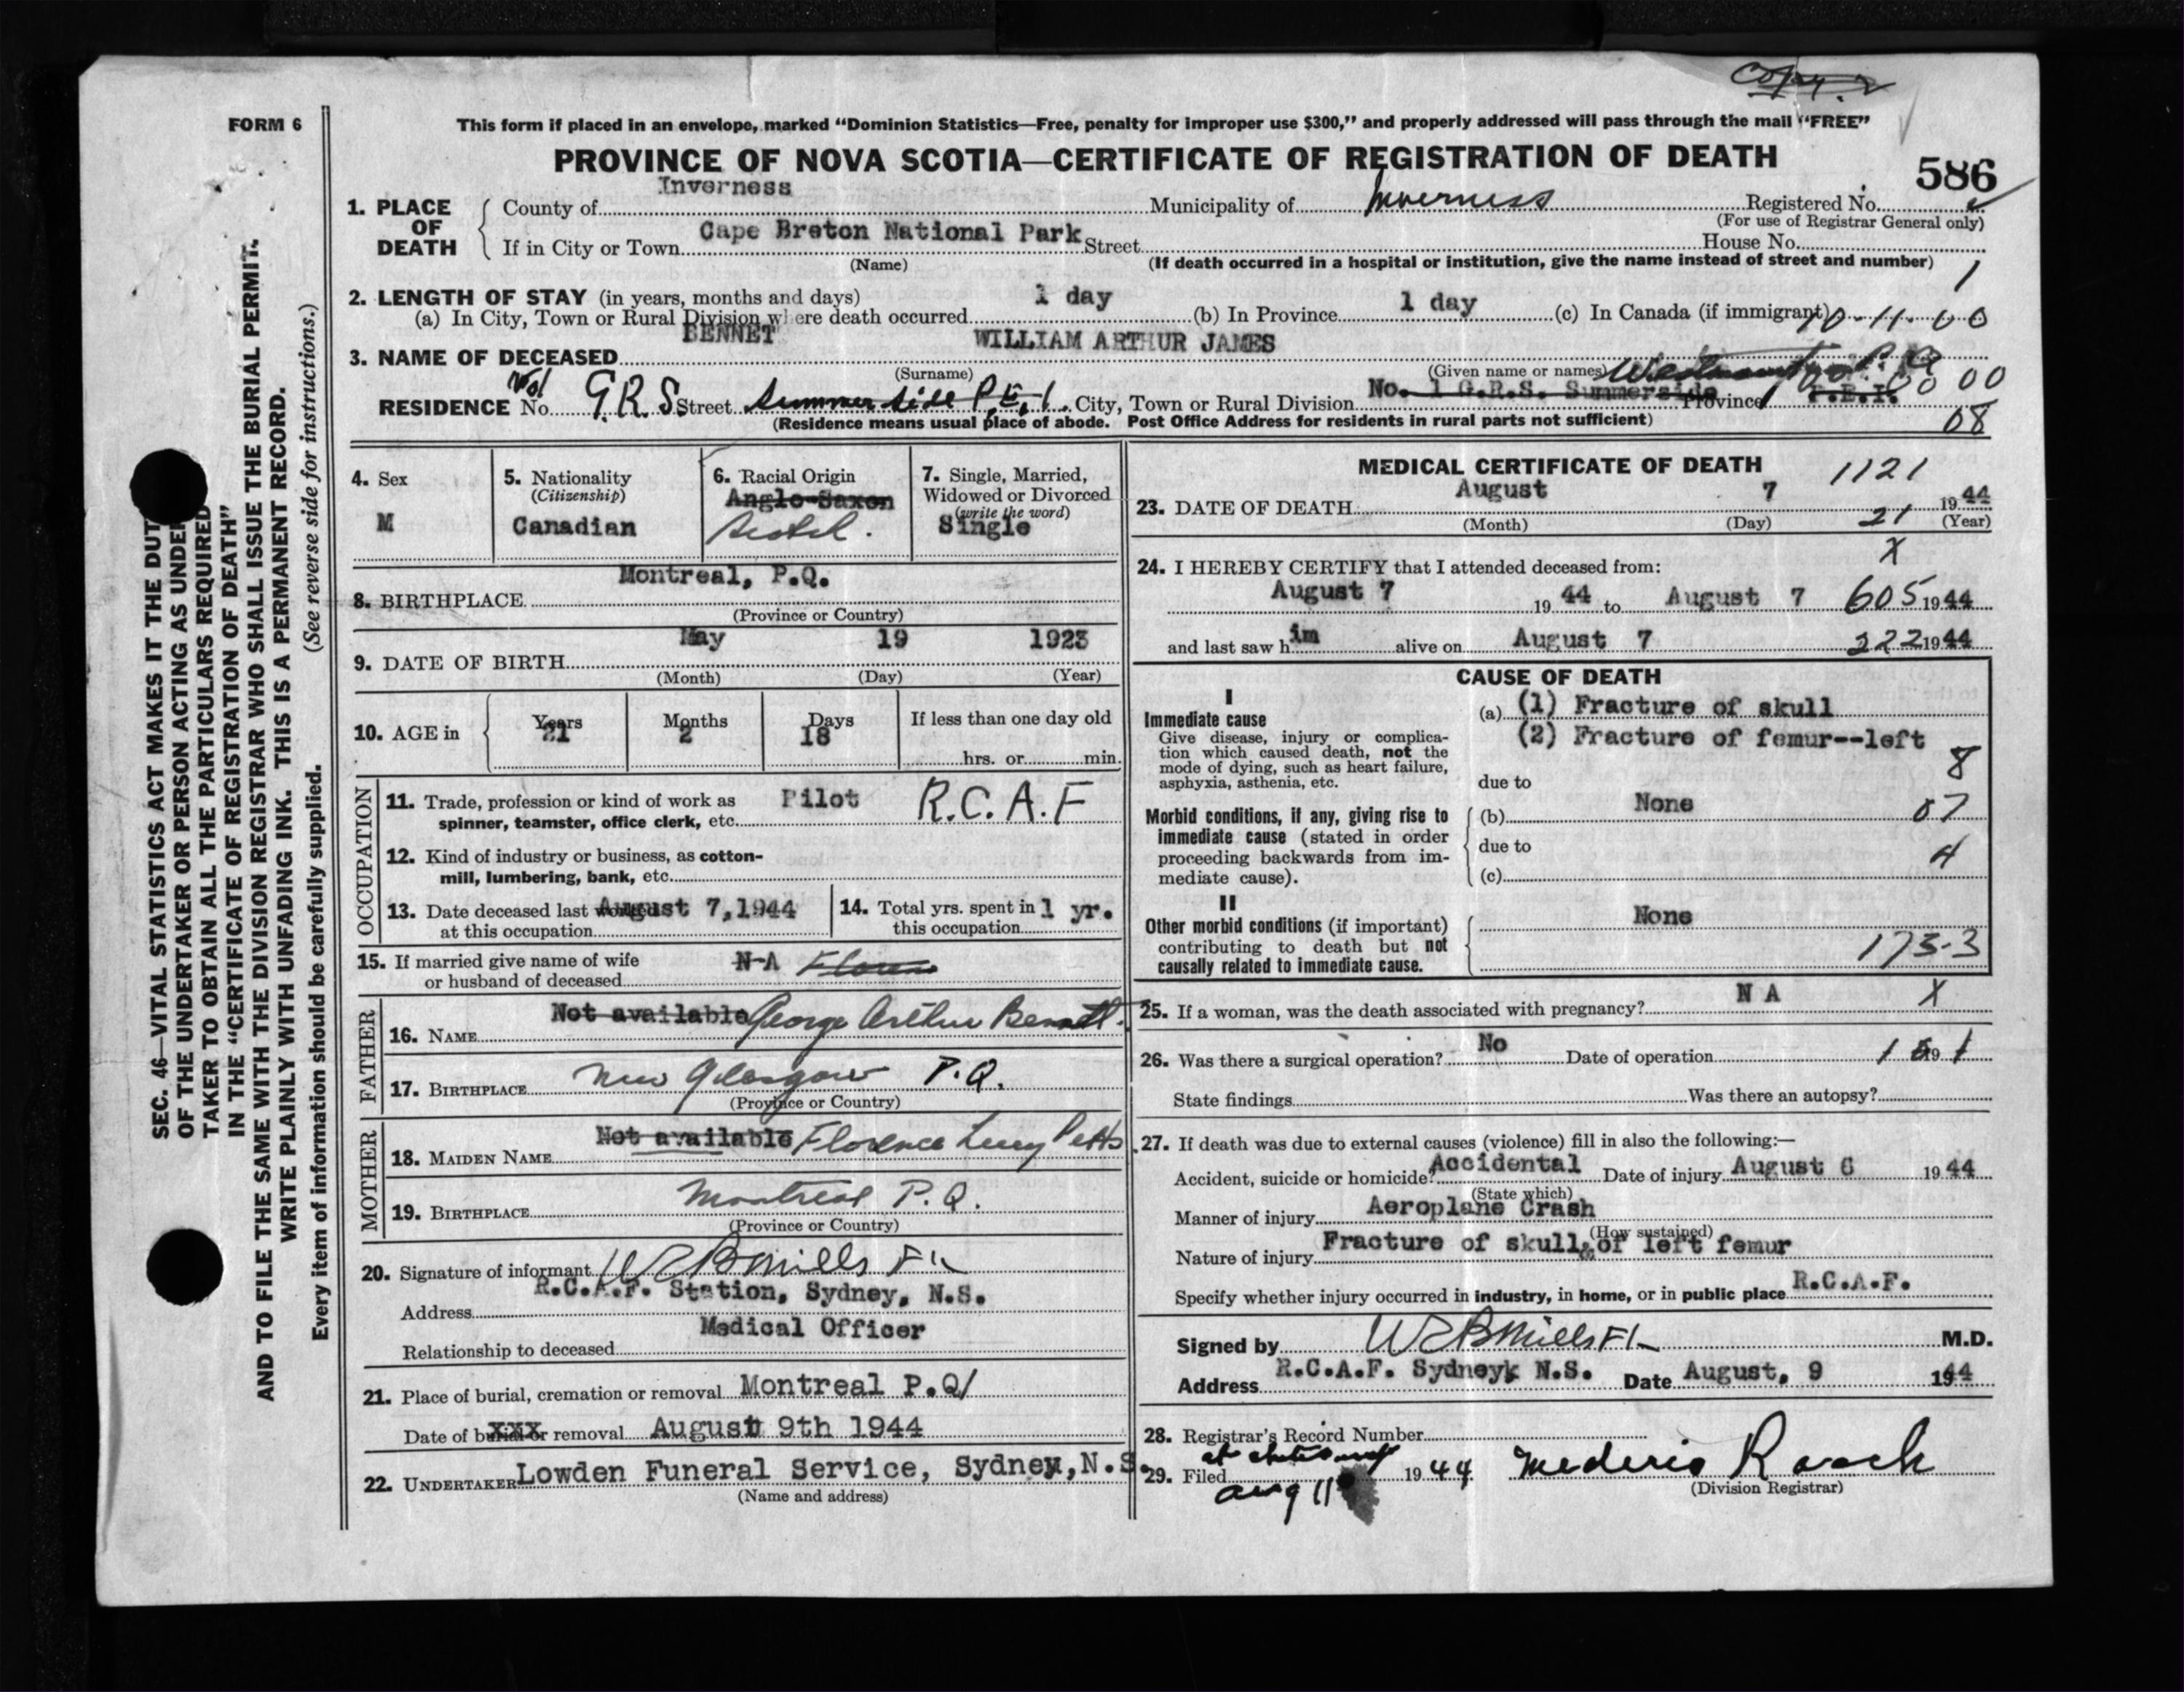 Copy. 2
FORM 6
This form if placed in an envelope, marked "Dominion Statistics—Free, penalty for improper use $300," and properly addressed will pass through the mail "FREE"
PROVINCE OF NOVA SCOTIA—CERTIFICATE OF REGISTRATION OF DEATH
586
1. PLACE OF DEATH
County of Inverness Municipality of Inverness Registered No.
(For use of Registrar General only)
If in City or Town Cape Breton National Park Street House No.
(Name) (If death occurred in a hospital or institution, give the name instead of street and number)
1
2. LENGTH OF STAY (in years, months and days)
(a) In City, Town or Rural Division where death occurred 1 day (b) In Province 1 day (c) In Canada (if immigrant) 10-11-00
3. NAME OF DECEASED BENNET WILLIAM ARTHUR JAMES
(Surname) (Given name or names)
RESIDENCE No. G.R.S Street Summerside P.E.I. City, Town or Rural Division No. 1 G.R.S. Summerside Province P.E.I. 00 00
(Residence means usual place of abode. Post Office Address for residents in rural parts not sufficient) 08
4. Sex
M
5. Nationality
(Citizenship)
Canadian
6. Racial Origin
Anglo-Saxon
Scotch.
7. Single, Married,
Widowed or Divorced
(write the word)
Single
8. BIRTHPLACE Montreal, P.Q.
(Province or Country)
9. DATE OF BIRTH May 19 1923
(Month) (Day) (Year)
10. AGE in Years 21 Months 2 Days 18 If less than one day old
hrs. or min.
OCCUPATION
11. Trade, profession or kind of work as
spinner, teamster, office clerk, etc. Pilot R.C.A.F
12. Kind of industry or business, as cotton-
mill, lumbering, bank, etc.
13. Date deceased last worked
at this occupation August 7, 1944
14. Total yrs. spent in
this occupation 1 yr.
15. If married give name of wife
or husband of deceased N-A
FATHER
16. NAME Not available George Arthur Bennett.
17. BIRTHPLACE New Glasgow P.Q.
(Province or Country)
MOTHER
18. MAIDEN NAME Not available Florence Lucy Petts
19. BIRTHPLACE Montreal P.Q.
(Province or Country)
20. Signature of informant W E B Mills F/L
Address R.C.A.F. Station, Sydney, N.S.
Relationship to deceased Medical Officer
21. Place of burial, cremation or removal Montreal P.Q/
Date of burial or removal August 9th 1944
22. UNDERTAKER Lowden Funeral Service, Sydney, N.S.
(Name and address)
MEDICAL CERTIFICATE OF DEATH 1121
23. DATE OF DEATH August 7 21 1944
(Month) (Day) (Year)
X
24. I HEREBY CERTIFY that I attended deceased from:
August 7 1944 to August 7 605 1944
and last saw him alive on August 7 222 1944
CAUSE OF DEATH
I
Immediate cause
Give disease, injury or complica-
tion which caused death, not the
mode of dying, such as heart failure,
asphyxia, asthenia, etc.
(a) (1) Fracture of skull
(2) Fracture of femur--left
8
due to
Morbid conditions, if any, giving rise to
immediate cause (stated in order
proceeding backwards from im-
mediate cause).
(b) None 07
due to 4
(c)
II
Other morbid conditions (if important)
contributing to death but not
causally related to immediate cause.
None
175-3
25. If a woman, was the death associated with pregnancy? N A X
26. Was there a surgical operation? No Date of operation
State findings Was there an autopsy?
27. If death was due to external causes (violence) fill in also the following:—
Accident, suicide or homicide? Accidental Date of injury August 6 1944
(State which)
Manner of injury Aeroplane Crash
(How sustained)
Nature of injury Fracture of skull & of left femur
Specify whether injury occurred in industry, in home, or in public place R.C.A.F.
Signed by W E B Mills F/L M.D.
Address R.C.A.F. Sydney N.S. Date August, 9 1944
28. Registrar's Record Number
29. Filed Aug 11 1944 Mederic Roach
(Division Registrar)
SEC. 46—VITAL STATISTICS ACT MAKES IT THE DUTY
OF THE UNDERTAKER OR PERSON ACTING AS UNDER
TAKER TO OBTAIN ALL THE PARTICULARS REQUIRED
IN THE "CERTIFICATE OF REGISTRATION OF DEATH"
AND TO FILE THE SAME WITH THE DIVISION REGISTRAR WHO SHALL ISSUE THE BURIAL PERMIT.
WRITE PLAINLY WITH UNFADING INK. THIS IS A PERMANENT RECORD.
Every item of information should be carefully supplied. (See reverse side for instructions.)